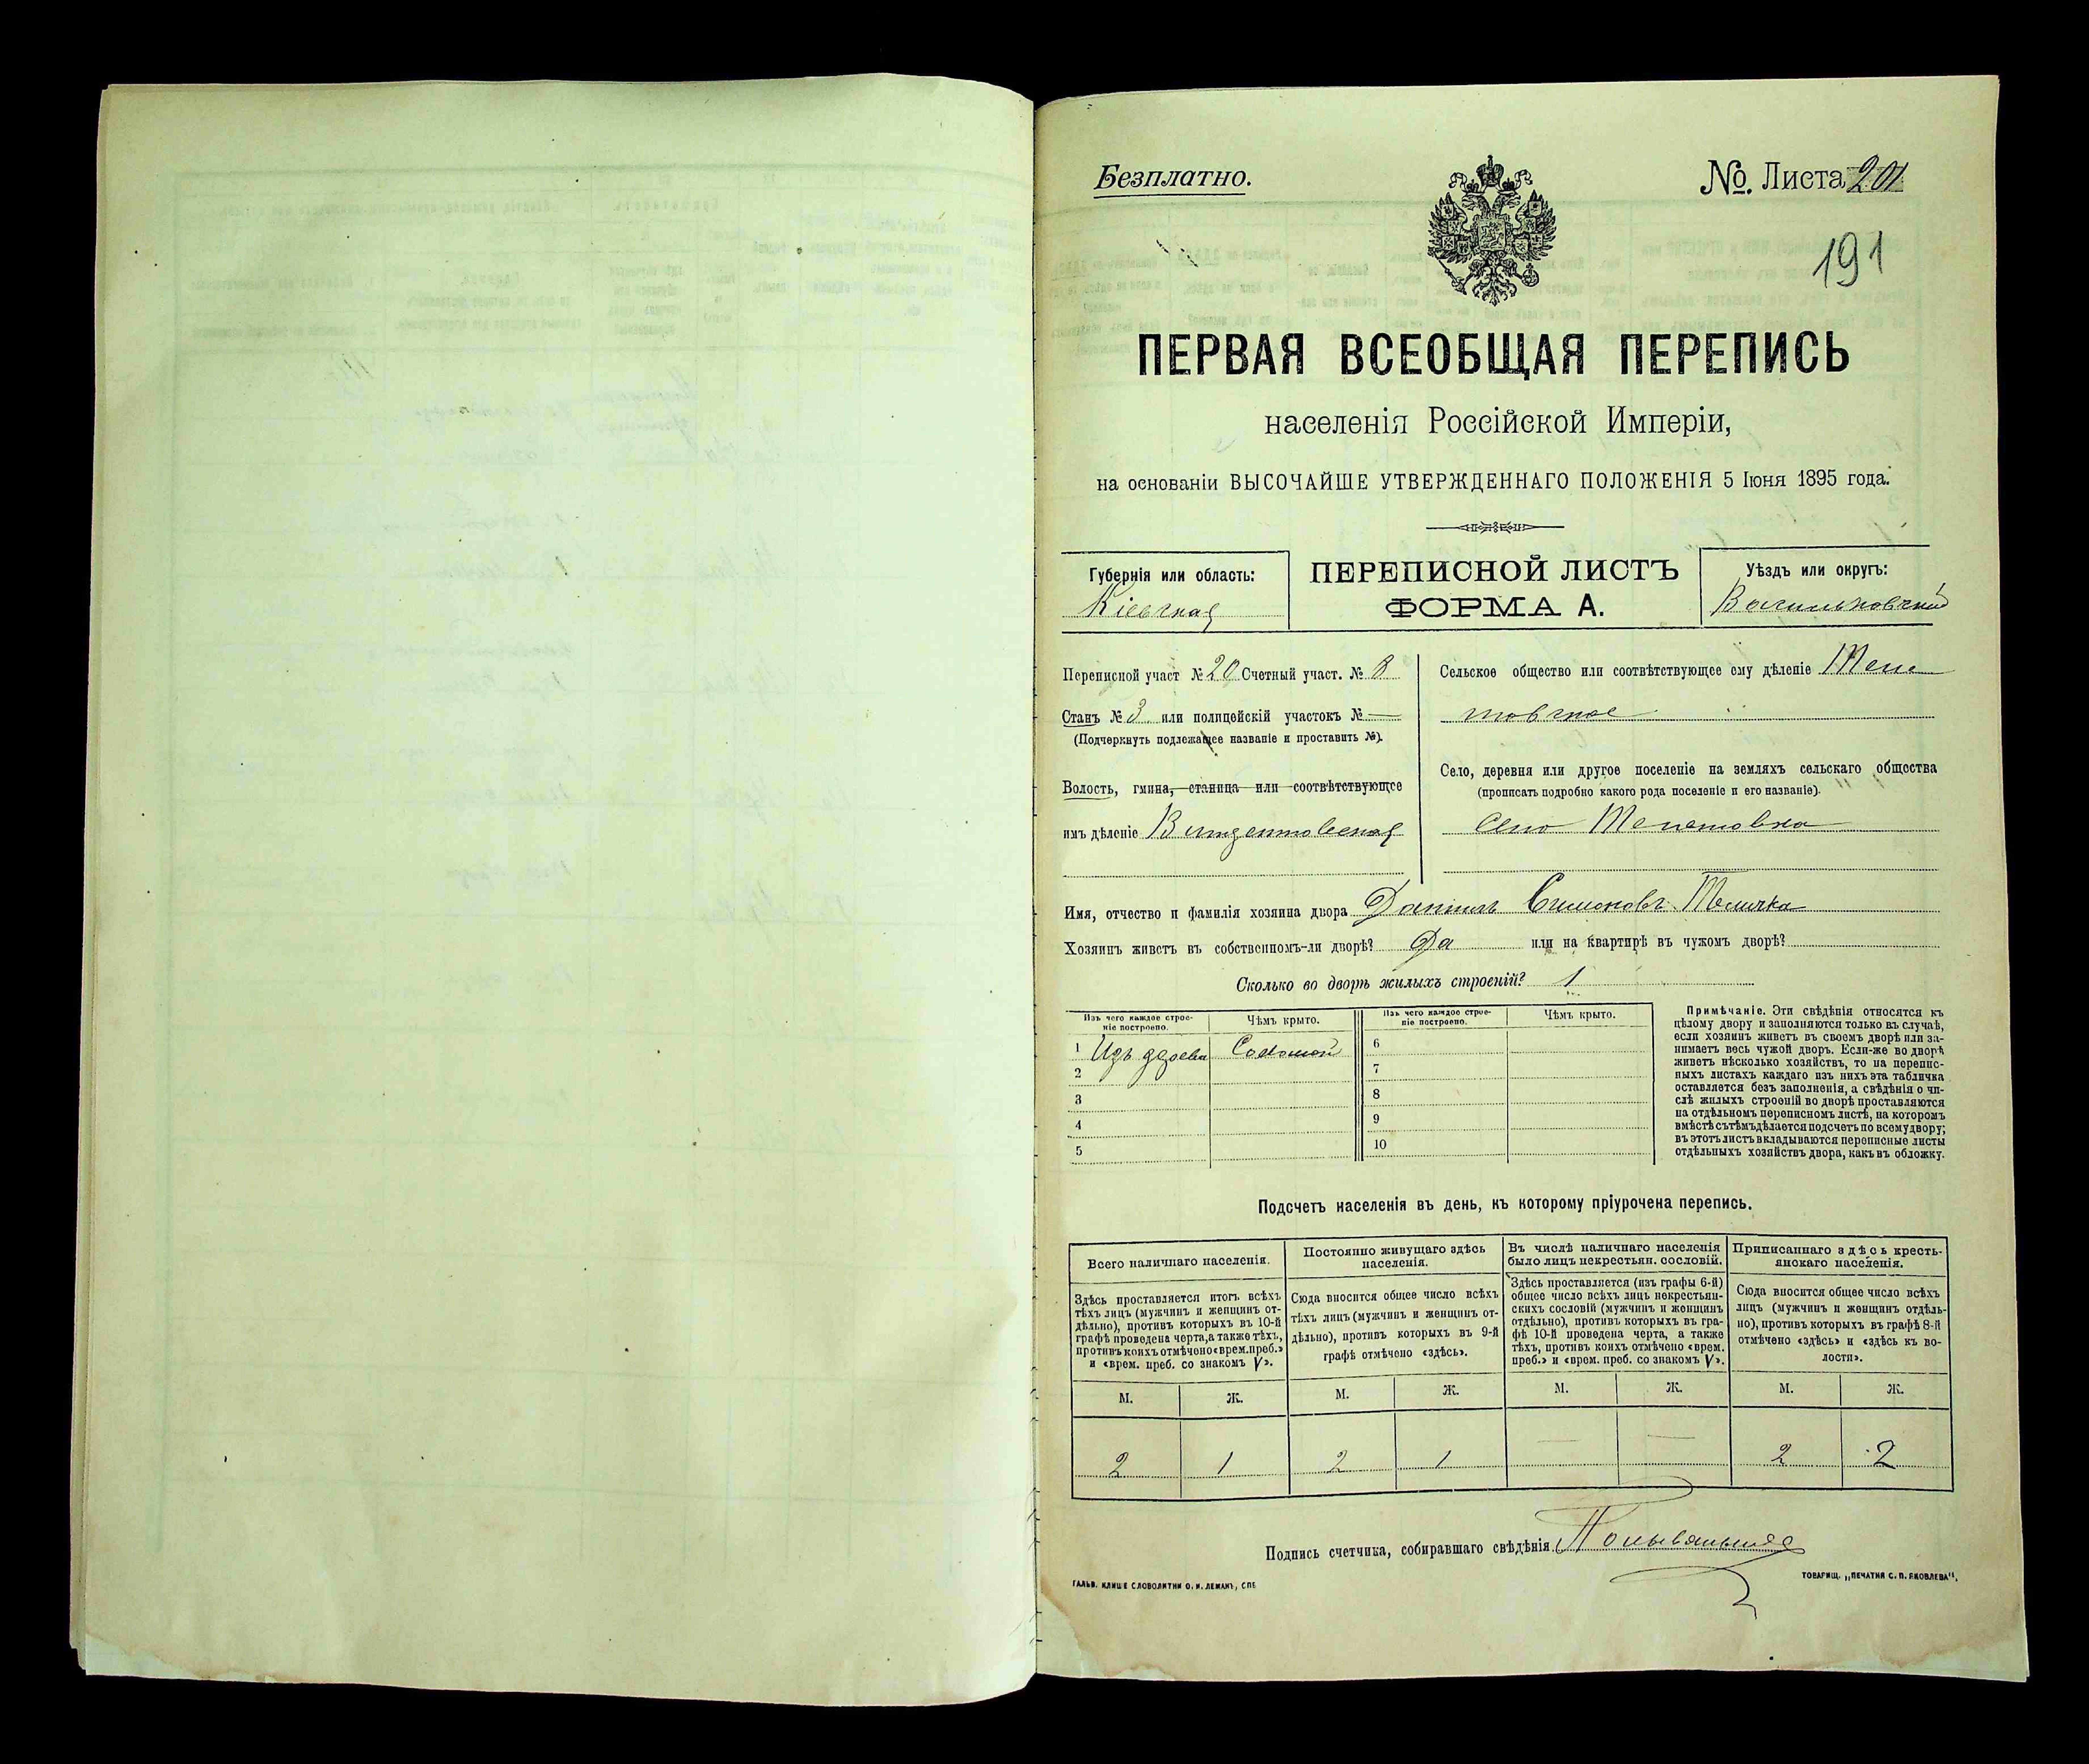 Безплатно.
№. Листа 201
191
ПЕРВАЯ ВСЕОБЩАЯ ПЕРЕПИСЬ
населенія Россійской Имперіи,
на основаніи ВЫСОЧАЙШЕ УТВЕРЖДЕННАГО ПОЛОЖЕНІЯ 5 Іюня 1895 года.
Губернія или область:
Кіевская
ПЕРЕПИСНОЙ ЛИСТЪ
ФОРМА А.
Уѣздъ или округъ:
Васильковскій
Переписной участ № 20 Счетный участ. № 8
Станъ № 3 или полицейскій участокъ № —
(Подчеркнуть подлежащее названіе и проставить №).
Волость, гмина, станица или соотвѣтствующее
имъ дѣленіе Винцентовская
Сельское общество или соотвѣтствующее ему дѣленіе
товское
Село, деревня или другое поселеніе на земляхъ сельскаго общества
(прописать подробно какого рода поселеніе и его названіе).
Село
Имя, отчество и фамилія хозяина двора Даніилъ Симоновъ Теличка
Хозяинъ живетъ въ собственномъ-ли дворѣ? Да или на квартирѣ въ чужомъ дворѣ?
Сколько во дворѣ жилыхъ строеній? 1
Изъ чего каждое строе-
ніе построено.
Чѣмъ крыто.
1 Изъ дерева Соломой
2
3
4
5
Изъ чего каждое строе-
ніе построено.
Чѣмъ крыто.
6
7
8
9
10
Примѣчаніе. Эти свѣдѣнія относятся къ
цѣлому двору и заполняются только въ случаѣ,
если хозяинъ живетъ въ своемъ дворѣ или за-
нимаетъ весь чужой дворъ. Если-же во дворѣ
живетъ нѣсколько хозяйствъ, то на перепис-
ныхъ листахъ каждаго изъ нихъ эта табличка
оставляется безъ заполненія, а свѣдѣнія о чи-
слѣ жилыхъ строеній во дворѣ проставляются
на отдѣльномъ переписномъ листѣ, на которомъ
вмѣстѣ съ тѣмъ дѣлается подсчетъ по всему двору;
въ этотъ листъ вкладываются переписные листы
отдѣльныхъ хозяйствъ двора, какъ въ обложку.
Подсчетъ населенія въ день, къ которому пріурочена перепись.
Всего наличнаго населенія.
Здѣсь проставляется итогъ всѣхъ
тѣхъ лицъ (мужчинъ и женщинъ от-
дѣльно), противъ которыхъ въ 10-й
графѣ проведена черта, а также тѣхъ,
противъ коихъ отмѣчено «врем. преб.»
и «врем. преб. со знакомъ V».
Постоянно живущаго здѣсь
населенія.
Сюда вносится общее число всѣхъ
тѣхъ лицъ (мужчинъ и женщинъ от-
дѣльно), противъ которыхъ въ 9-й
графѣ отмѣчено «здѣсь».
Въ числѣ наличнаго населенія
было лицъ некрестьян. сословій.
Здѣсь проставляется (изъ графы 6-й)
общее число всѣхъ лицъ некрестьян-
скихъ сословій (мужчинъ и женщинъ
отдѣльно), противъ которыхъ въ гра-
фѣ 10-й проведена черта, а также
тѣхъ, противъ коихъ отмѣчено «врем.
преб.» и «врем. преб. со знакомъ V».
Приписаннаго здѣсь кресть-
янскаго населенія.
Сюда вносится общее число всѣхъ
лицъ (мужчинъ и женщинъ отдѣль-
но), противъ которыхъ въ графѣ 8-й
отмѣчено «здѣсь» и «здѣсь къ во-
лости».
М. Ж. М. Ж. М. Ж. М. Ж.
2 1 2 1 — — 2 2
Подпись счетчика, собиравшаго свѣдѣнія
ГАЛЬВ. КЛИШЕ СЛОВОЛИТНИ О. И. ЛЕМАНЪ, СПБ
ТОВАРИЩ. „ПЕЧАТНЯ С. П. ЯКОВЛЕВА“.